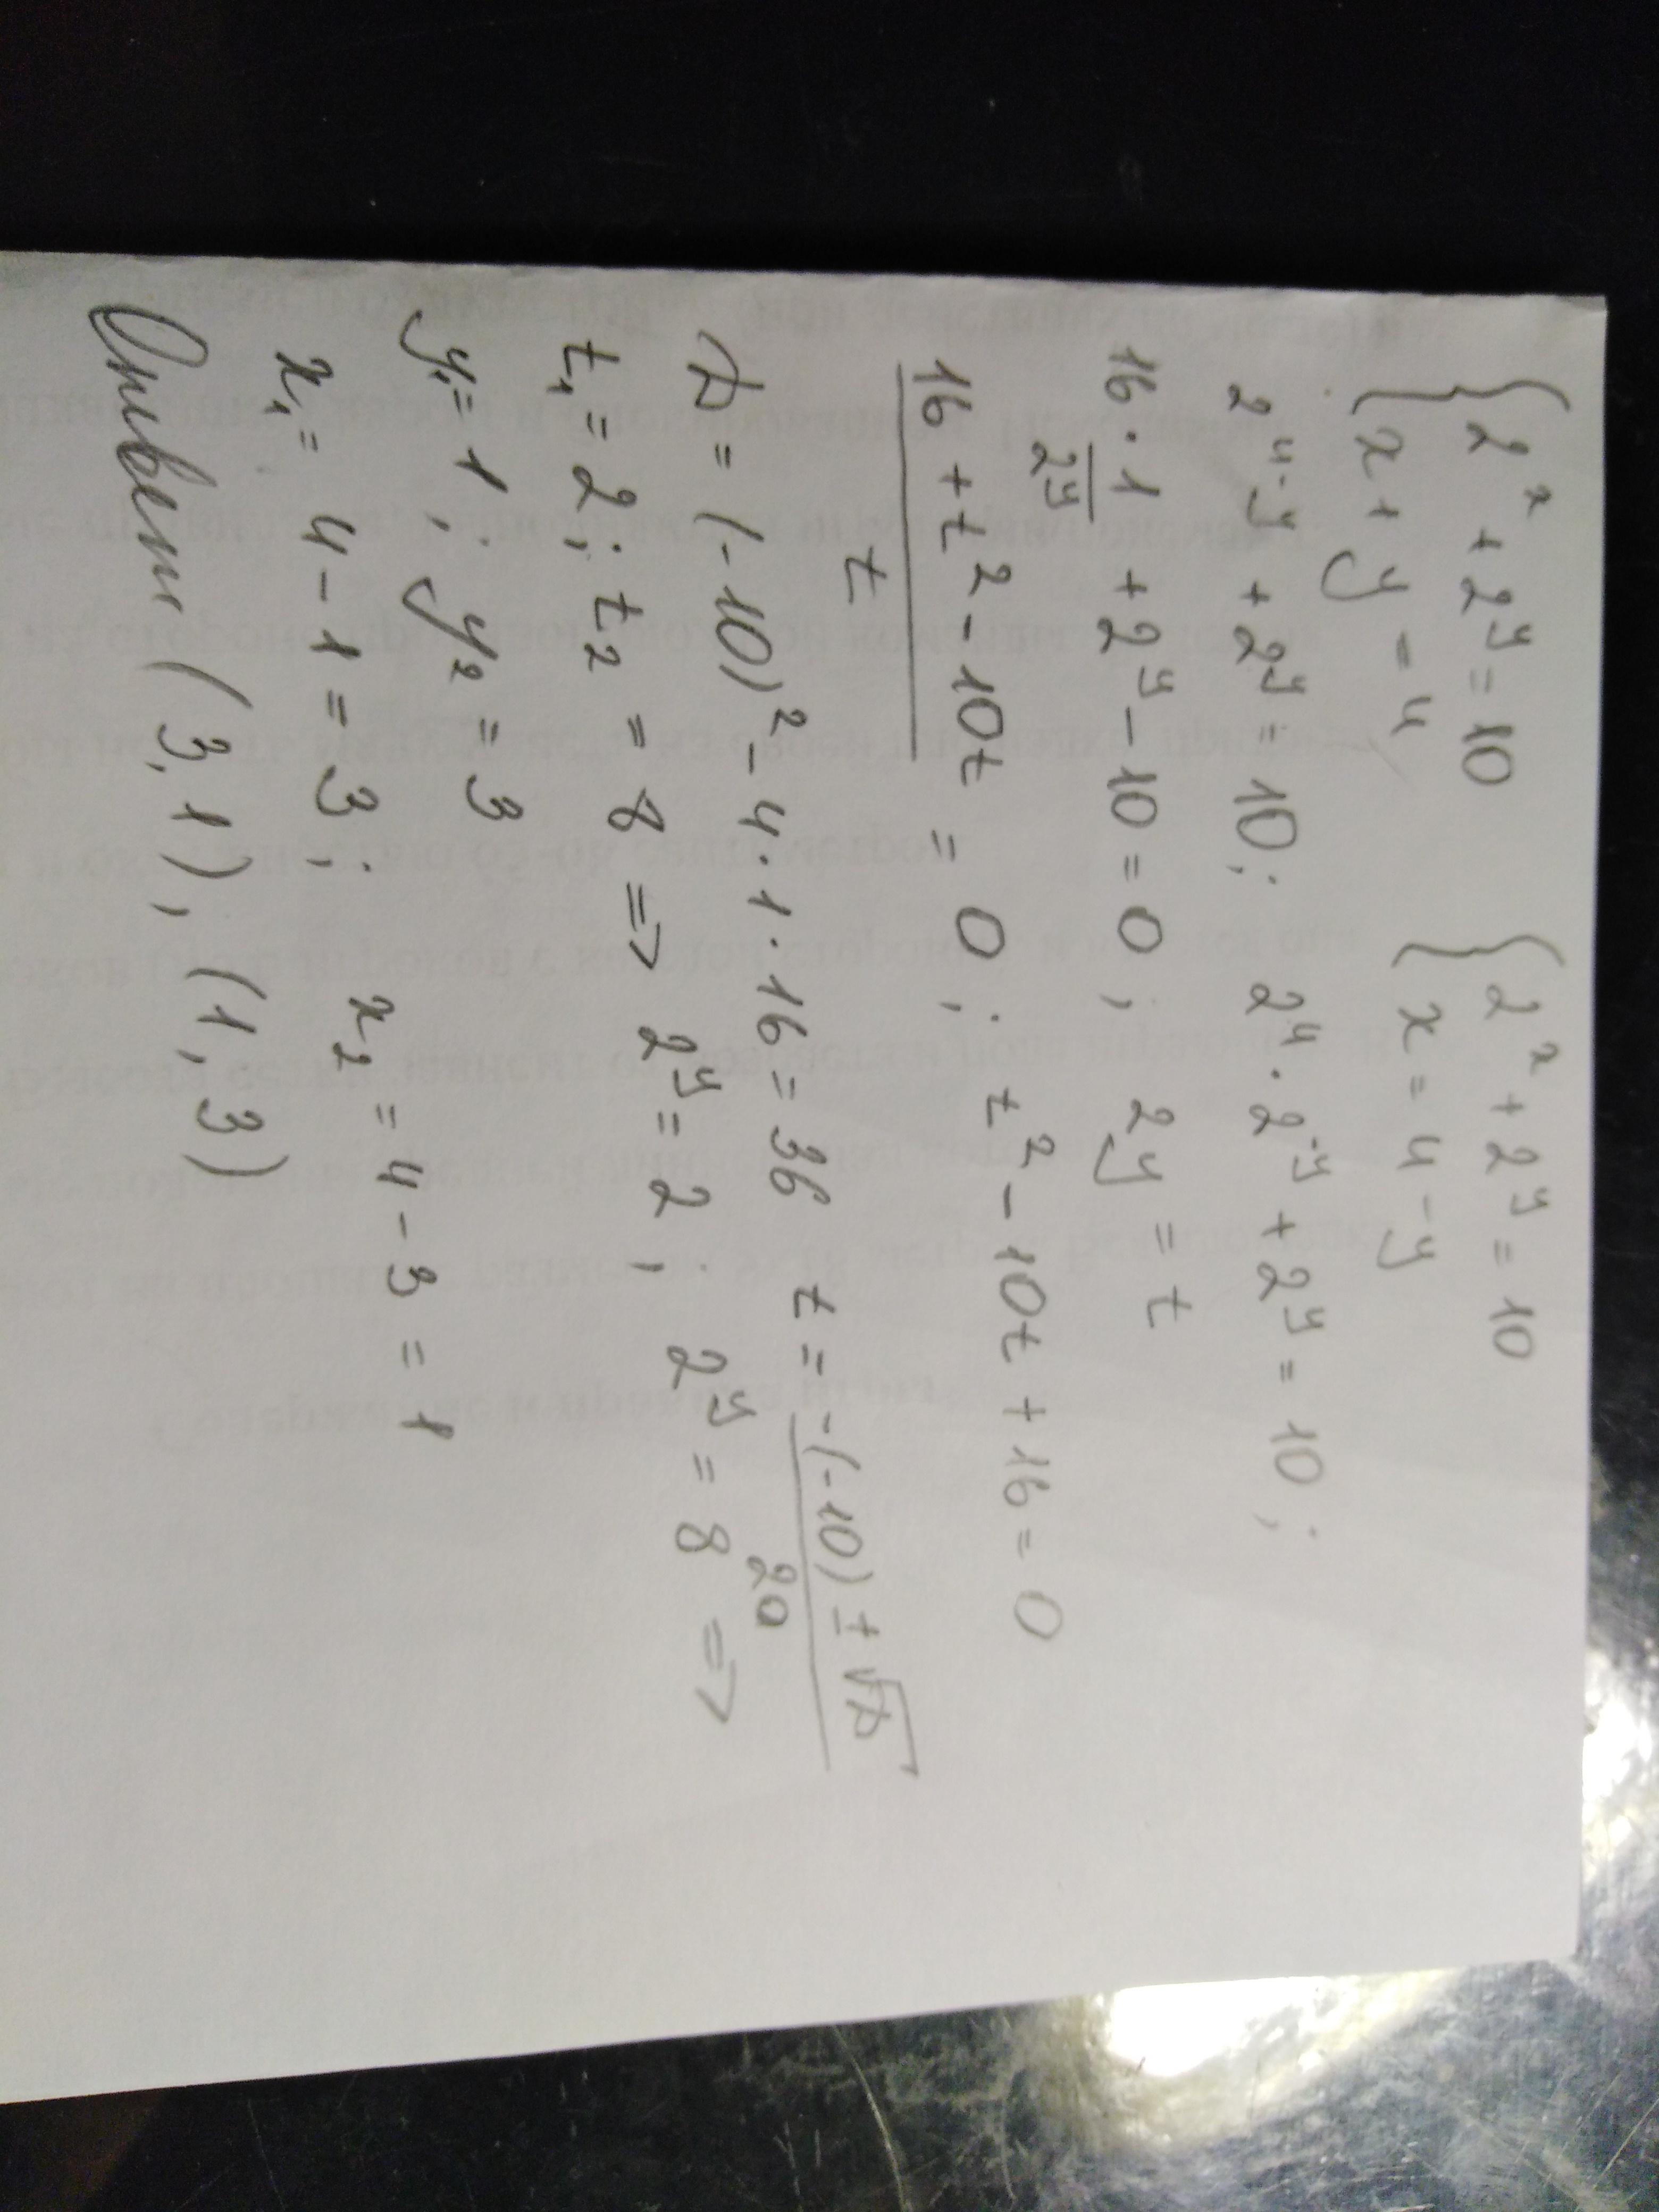 {2^x + 2^y = 10 {2^x + 2^y = 10
{x + y = 4 {x = 4 - y
2^(4-y) + 2^y = 10; 2^4 · 2^(-y) + 2^y = 10;
16 · 1/2^y + 2^y - 10 = 0; 2y = t
(16 + t² - 10t)/t = 0; t² - 10t + 16 = 0
D = (-10)² - 4 · 1 · 16 = 36 t = (-(-10) ± √D)/2a
t₁ = 2; t₂ = 8 => 2^y = 2; 2^y = 8 =>
y₁ = 1; y₂ = 3
x₁ = 4 - 1 = 3; x₂ = 4 - 3 = 1
Ответ (3, 1), (1, 3)